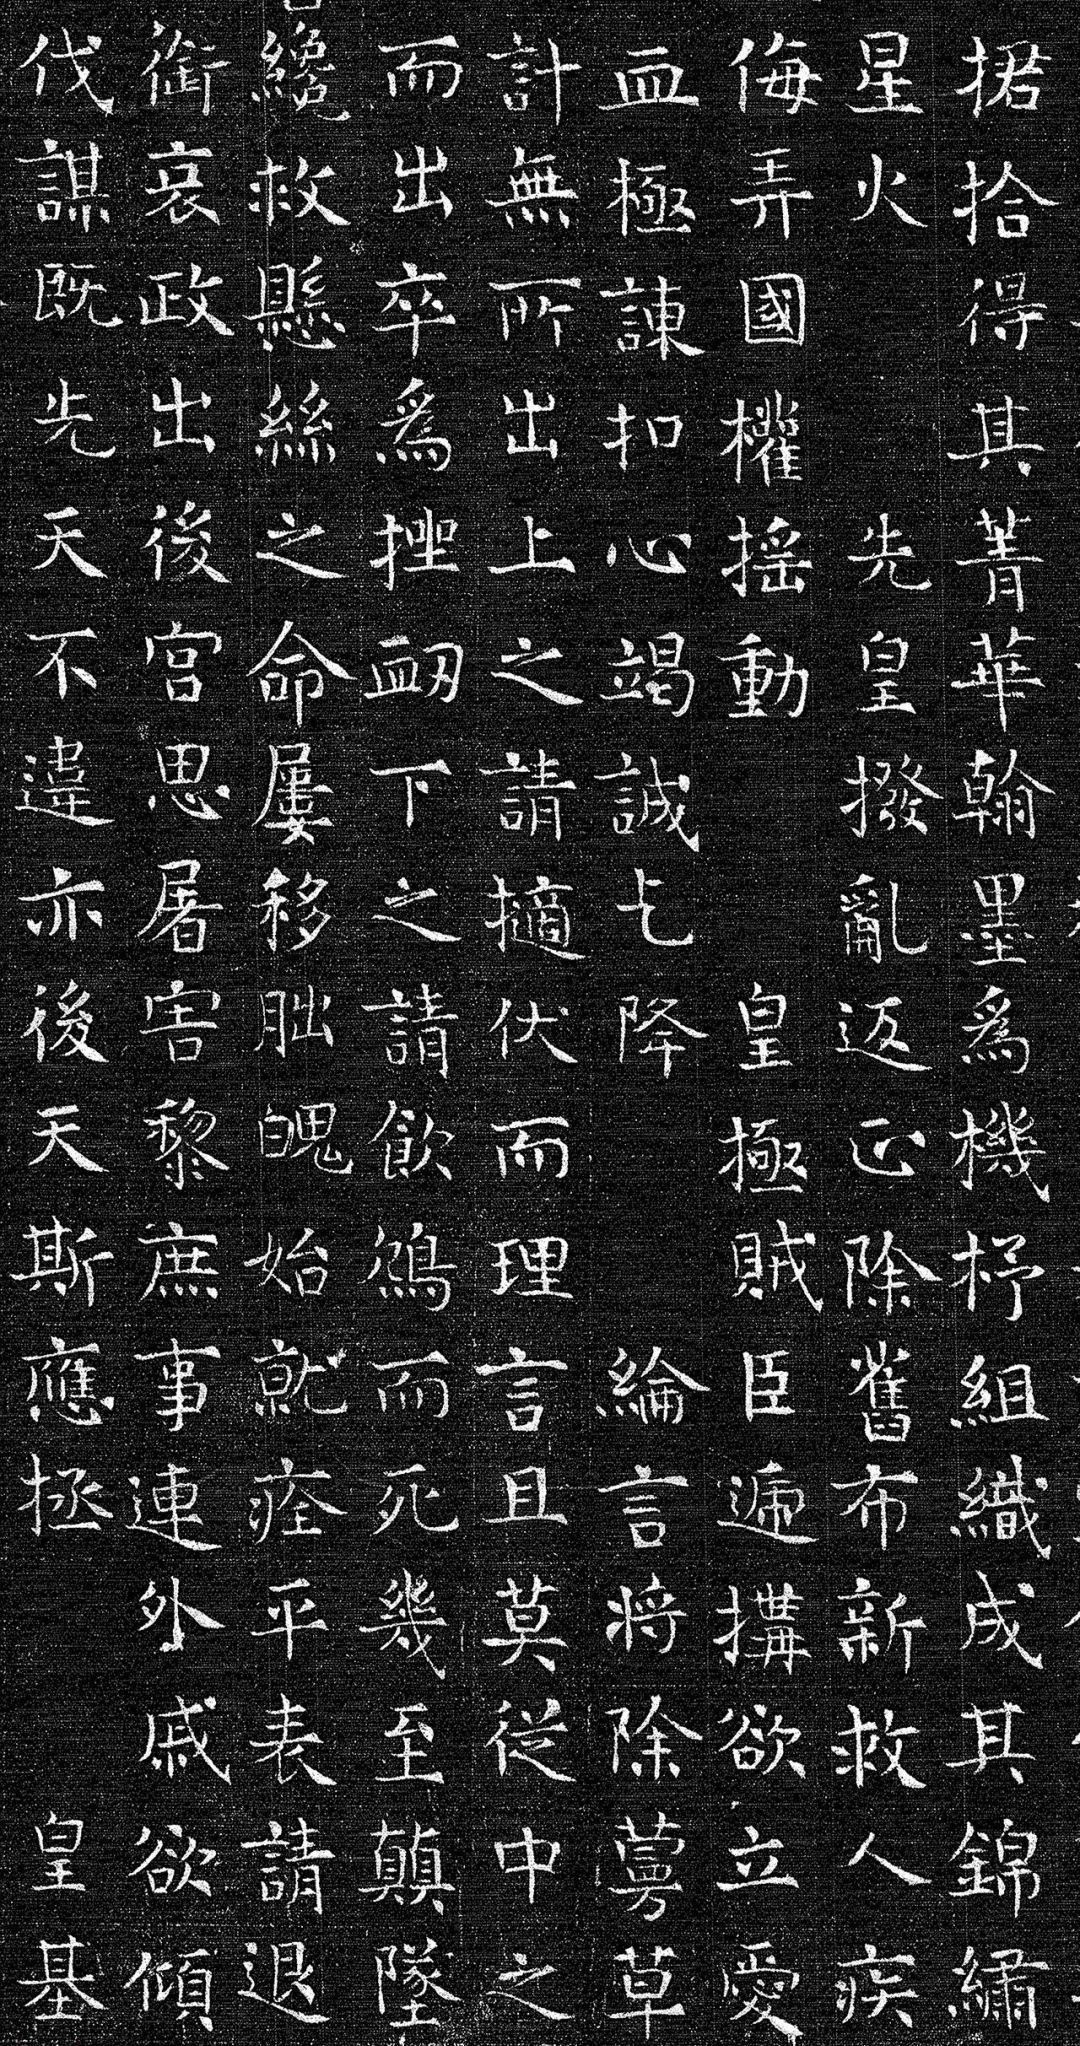 捃拾得其菁華翰墨爲機杼組織成其錦繡
星火　　先皇撥亂返正除舊布新救人疾
侮弄國權搖動　　皇極賊臣遞構欲立愛
血極諫扣心竭誠乞降　　綸言將除蔓草
計無所出上之請擿伏而理言且莫從中之
而出卒爲挫衂下下之請飲鴆而死幾至顛墜
纔救懸絲之命屢移朏魄始就痊平表請退
銜哀政出後宮思屠害黎庶事連外戚欲傾
伐謀既先天不違亦後天斯應拯　　皇基